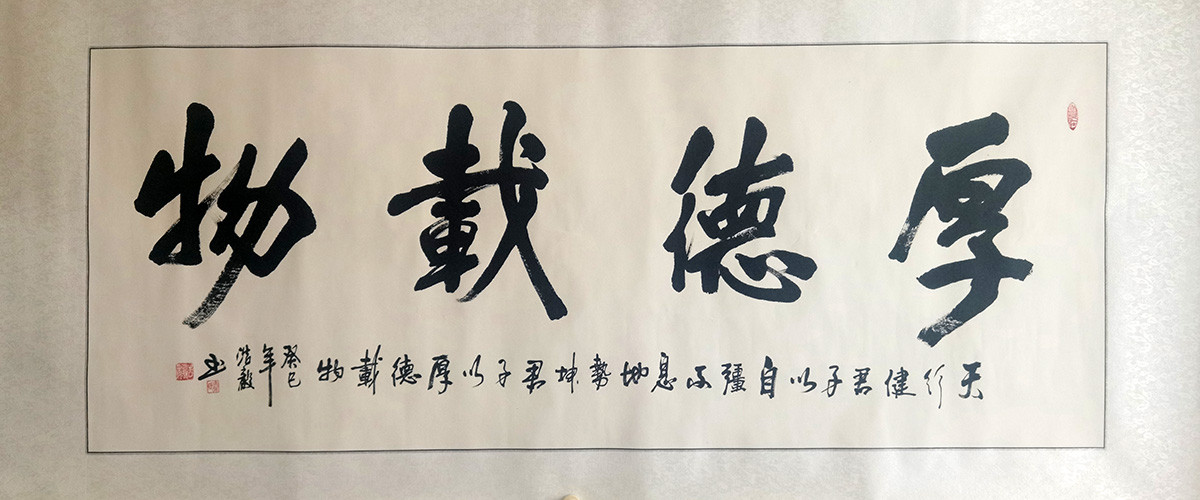 厚德載物
天行健君子以自彊不息地勢坤君子以厚德載物
癸巳
年
浩
书